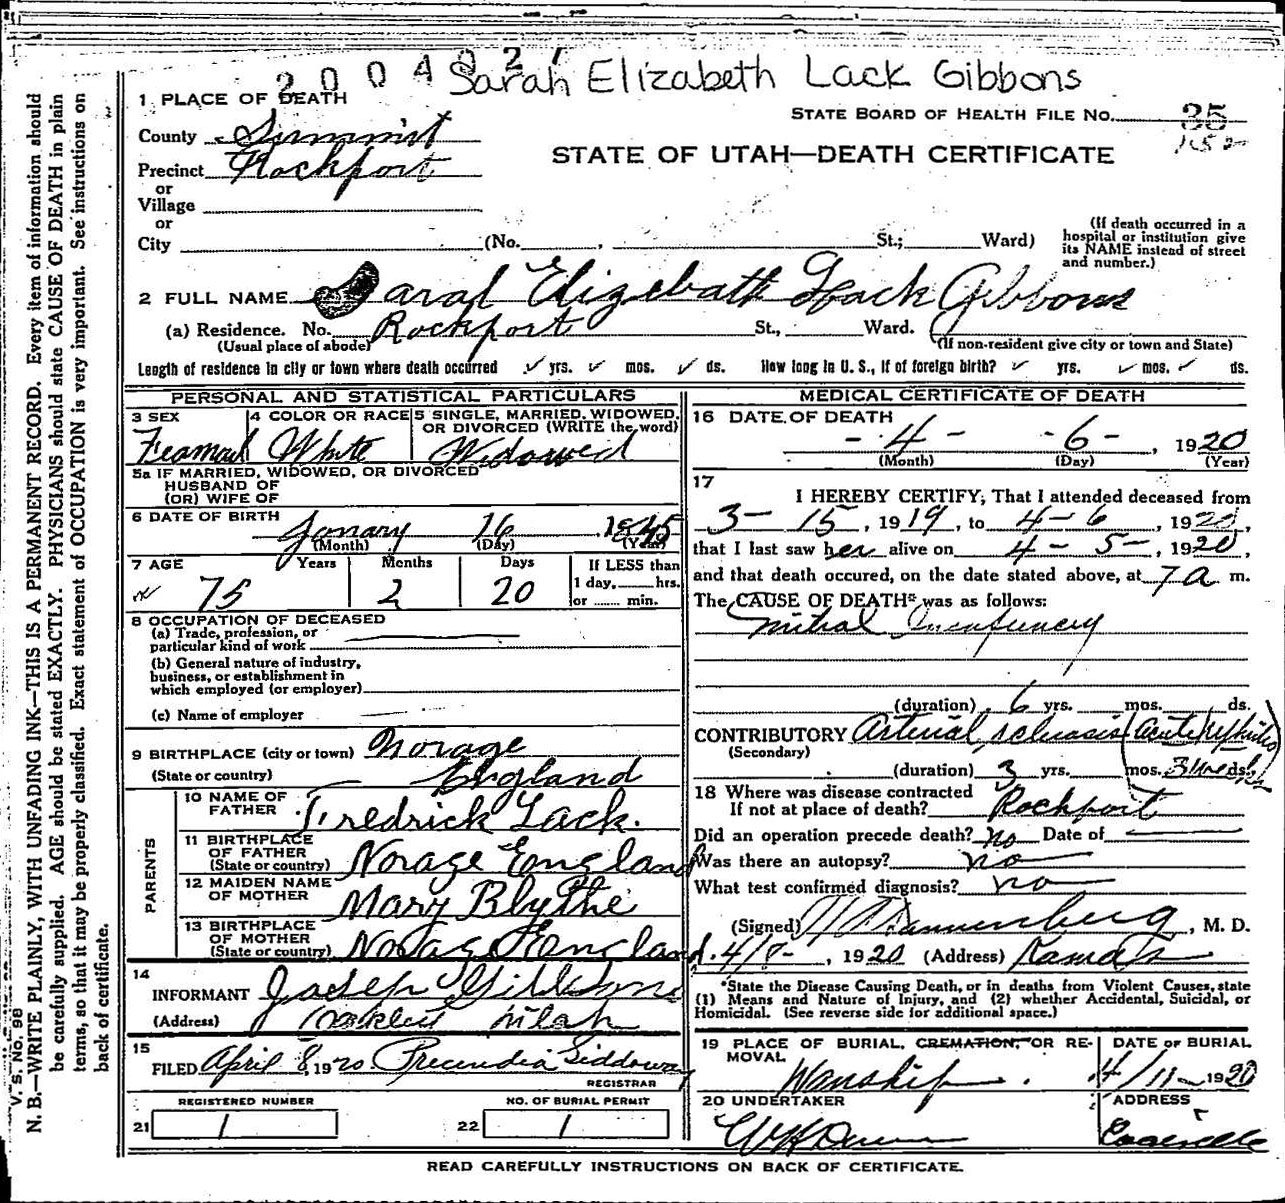 2004021
Sarah Elizabeth Lack Gibbons
1 PLACE OF DEATH
STATE BOARD OF HEALTH FILE NO. 35
152
County Summit
STATE OF UTAH—DEATH CERTIFICATE
Precinct Rockport
or
Village
or
City (No. , St.; Ward)
(If death occurred in a hospital or institution give its NAME instead of street and number.)
2 FULL NAME Sarah Elizebath Lack Gibbons
(a) Residence. No. Rockport St., Ward.
(Usual place of abode) (If non-resident give city or town and State)
Length of residence in city or town where death occurred ✓ yrs. ✓ mos. ✓ ds. How long in U. S., if of foreign birth? ✓ yrs. ✓ mos. ✓ ds.
PERSONAL AND STATISTICAL PARTICULARS
3 SEX 4 COLOR OR RACE 5 SINGLE, MARRIED, WIDOWED, OR DIVORCED (WRITE the word)
Feamail White Widowed
5a IF MARRIED, WIDOWED, OR DIVORCED
HUSBAND OF
(OR) WIFE OF
6 DATE OF BIRTH Janary 16 1845
(Month) (Day) (Year)
7 AGE Years Months Days If LESS than
75 2 20 1 day, hrs.
or min.
8 OCCUPATION OF DECEASED
(a) Trade, profession, or
particular kind of work
(b) General nature of industry,
business, or establishment in
which employed (or employer)
(c) Name of employer
9 BIRTHPLACE (city or town) Norage
(State or country) England
PARENTS
10 NAME OF FATHER Fredrick Lack.
11 BIRTHPLACE OF FATHER (State or country) Norage England
12 MAIDEN NAME OF MOTHER Mary Blythe
13 BIRTHPLACE OF MOTHER (State or country) Norage England
14
INFORMANT Joseph Gibbons
(Address) Utah
15
FILED April 8, 1920 Siddoway
REGISTRAR
REGISTERED NUMBER NO. OF BURIAL PERMIT
21 1 22 1
MEDICAL CERTIFICATE OF DEATH
16 DATE OF DEATH
4 - 6 -, 1920
(Month) (Day) (Year)
17
I HEREBY CERTIFY, That I attended deceased from
3 - 15, 1919, to 4 - 6, 1920,
that I last saw her alive on 4 - 5 -, 1920,
and that death occured, on the date stated above, at 7 a m.
The CAUSE OF DEATH* was as follows:
Mitral
(duration) 6 yrs. mos. ds.
CONTRIBUTORY Arterial sclerosis (acute Nephritis
(Secondary)
(duration) 3 yrs. mos. 3 weeks ds.
18 Where was disease contracted
If not at place of death? Rockport
Did an operation precede death? no Date of
Was there an autopsy? no
What test confirmed diagnosis? no
(Signed) , M. D.
4/8-, 1920 (Address) Kamas
*State the Disease Causing Death, or in deaths from Violent Causes, state
(1) Means and Nature of Injury, and (2) whether Accidental, Suicidal, or
Homicidal. (See reverse side for additional space.)
19 PLACE OF BURIAL, CREMATION, OR REMOVAL DATE OF BURIAL
Wanship. 4/11-1920
20 UNDERTAKER ADDRESS
READ CAREFULLY INSTRUCTIONS ON BACK OF CERTIFICATE.
V. S. No. 98
N. B.—WRITE PLAINLY, WITH UNFADING INK—THIS IS A PERMANENT RECORD. Every item of information should
be carefully supplied. AGE should be stated EXACTLY. PHYSICIANS should state CAUSE OF DEATH in plain
terms, so that it may be properly classified. Exact statement of OCCUPATION is very important. See instructions on
back of certificate.